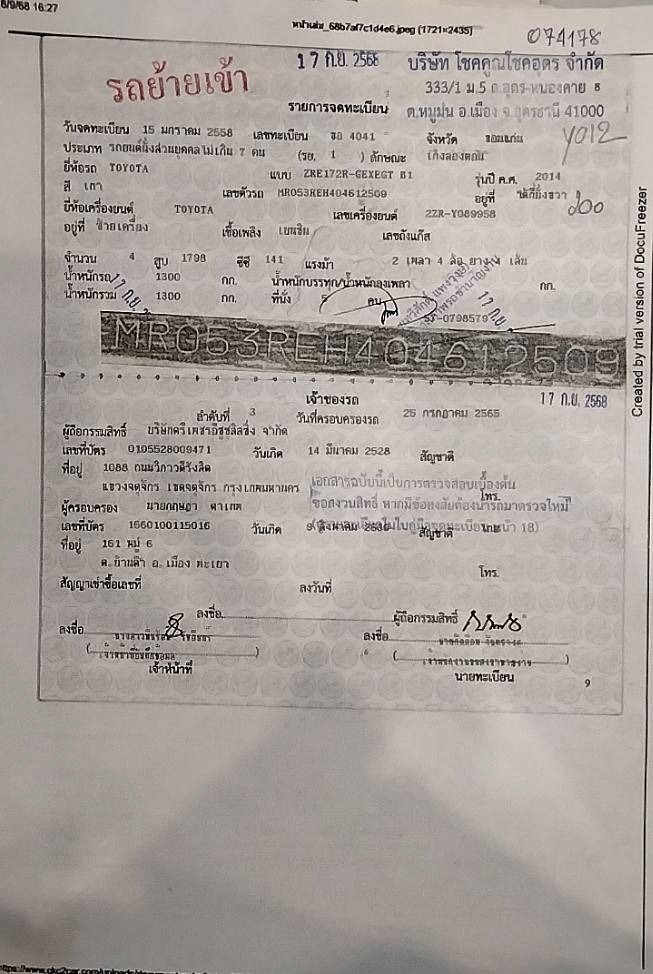 6/9/68 16:27
(1721×2435)
074178
รถย้ายเข้า
17 ก.ย. 2568
บริษัท โชคคูณโชคอุดร จำกัด
333/1 ม.5 ถ.อุดร-หนองคาย
ต.หมูม่น อ.เมือง จ.อุดรธานี 41000
รายการจดทะเบียน
วันจดทะเบียน 15 มกราคม 2558 เลขทะเบียน 4041 จังหวัด ขอนแก่น
ประเภท รถยนต์นั่งส่วนบุคคลไม่เกิน 7 คน (รย. 1 ) ลักษณะ เก๋งสองตอน
ยี่ห้อรถ TOYOTA แบบ ZRE172R-GEXEGT B1 รุ่นปี ค.ศ. 2014
สี เทา เลขตัวรถ MR053REH404612509 อยู่ที่ ใต้ที่นั่งขวา
ยี่ห้อเครื่องยนต์ TOYOTA เลขเครื่องยนต์ 2ZR-Y089958
อยู่ที่ ซ้ายเครื่อง เชื้อเพลิง เบนซิน เลขถังแก๊ส
จำนวน 4 สูบ 1798 ซีซี 141 แรงม้า 2 เพลา 4 ล้อ ยาง 4 เส้น
น้ำหนักรถ 1300 กก. น้ำหนักบรรทุก/น้ำหนักลงเพลา กก.
น้ำหนักรวม 1300 กก. ที่นั่ง 5 คน
17 ก.ย.
17 ก.ย.
-0798579
MR053REH404612509
เจ้าของรถ
17 ก.ย. 2568
ลำดับที่ 3 วันที่ครอบครองรถ 25 กรกฎาคม 2565
ผู้ถือกรรมสิทธิ์ บริษัทตรีเพชรอีซูซุลิสซิ่ง จำกัด
เลขที่บัตร 0105528009471 วันเกิด 14 มีนาคม 2528 สัญชาติ
ที่อยู่ 1088 ถนนวิภาวดีรังสิต
แขวงจตุจักร เขตจตุจักร กรุงเทพมหานคร โทร.
เอกสารฉบับนี้เป็นการตรวจสอบเบื้องต้น
ขอสงวนสิทธิ์ หากมีข้อสงสัยต้องนำรถมาตรวจใหม่
ผู้ครอบครอง นายกฤษฎา
เลขที่บัตร 1560100115016 วันเกิด 9 สิงหาคม สัญชาติ
ที่อยู่ 161 หมู่ 6
ต.บ้านต๊ำ อ.เมือง พะเยา
โทร.
สัญญาเช่าซื้อเลขที่ ลงวันที่
ลงชื่อ ผู้ถือกรรมสิทธิ์
ลงชื่อ ลงชื่อ
เจ้าหน้าที่ นายทะเบียน
9
Created by trial version of DocuFreezer